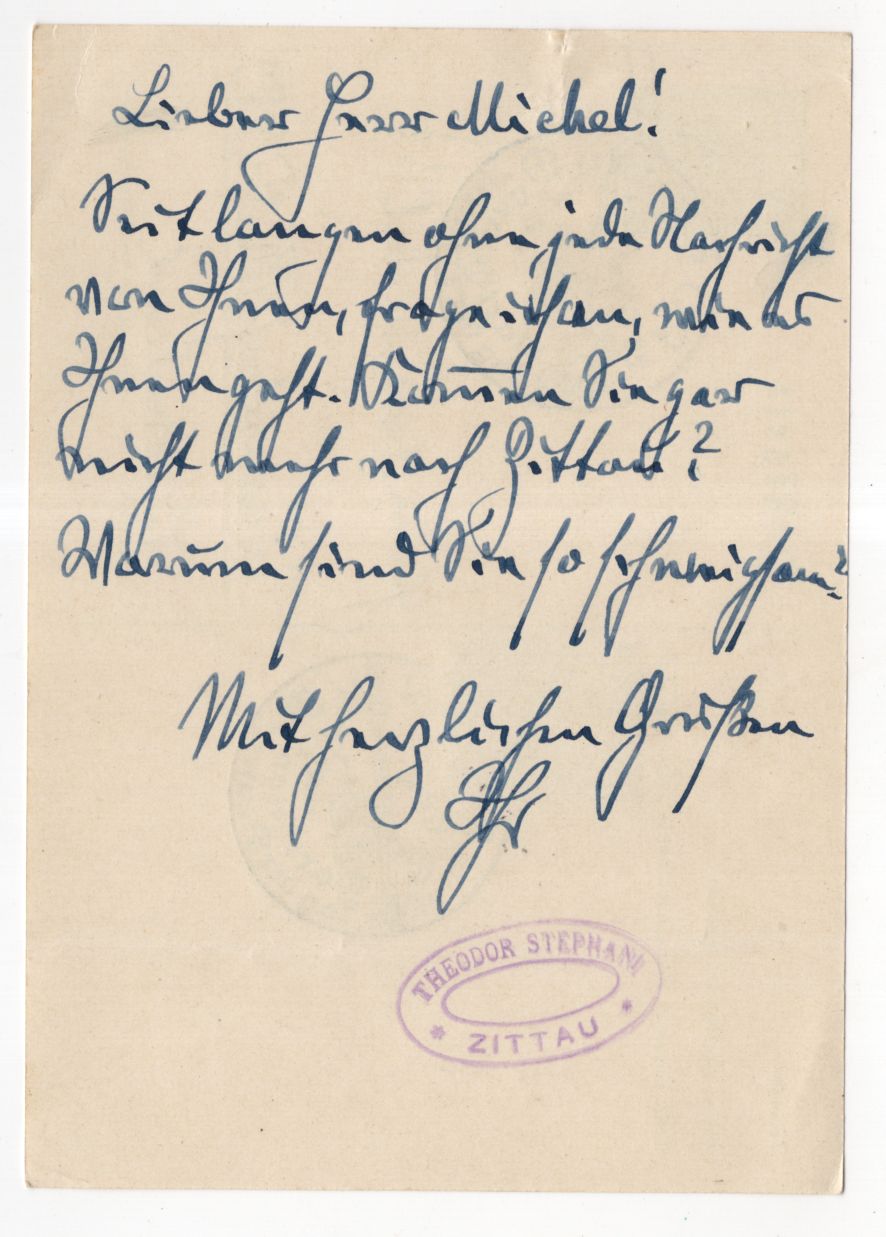 Lieber Herr Michel!
Seit langen ohne jede Nachricht
von Ihnen, frage ich an, wie es
Ihnen geht. Kom̄en Sie gar
nicht mehr nach Zittau?
Warum sind Sie so schweigsam?
Mit herzlichen Grüßen
Ihr
THEODOR STEPHANI
* ZITTAU *